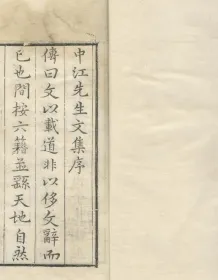 中江先生文集序
傳曰文以載道非以侈文辭而
已也間按六籍並繇天地自然